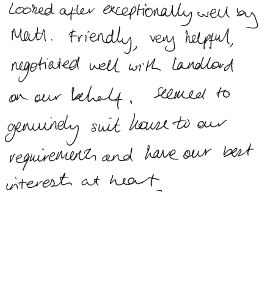 Looked after exceptionally well by
Matt. Friendly, very helpful,
negotiated well with Landlord
on our behalf. Seemed to
genuinely suit house to our
requirements and have our best
interests at heart.